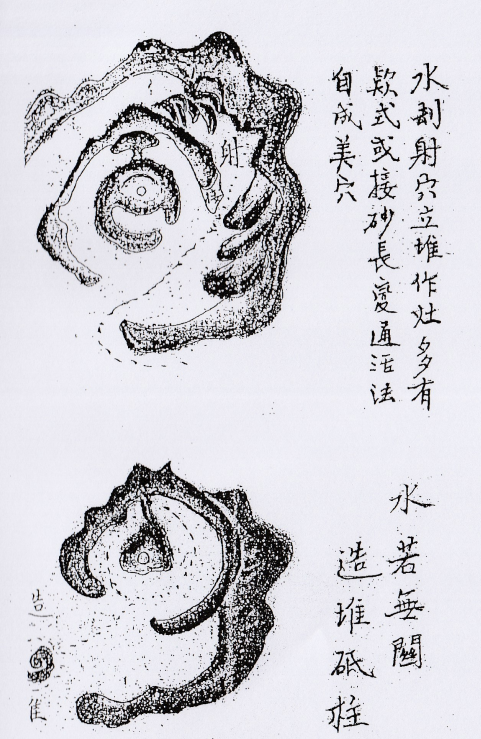 水割射穴立堆作灶多有
欵式或接砂長變通活法
自成美穴
射
水若無關
造堆砥柱
造